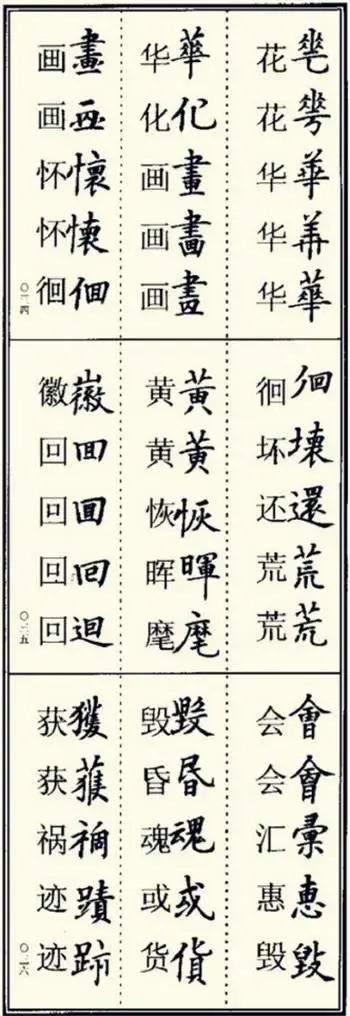 華華
花花华华华
華化畫畫畫
华化画画画
畫懷懐佪
画画怀怀徊
〇二四
佪壞還荒荒
徊坏还荒荒
黄黄恢暉麾
黄黄恢晖麾
徽囬囬回迴
徽回回回回
〇二五
會會彙惠毀
会会汇惠毁
毀昬魂或貨
毁昏魂或货
獲蒦禍蹟跡
获获祸迹迹
〇二六